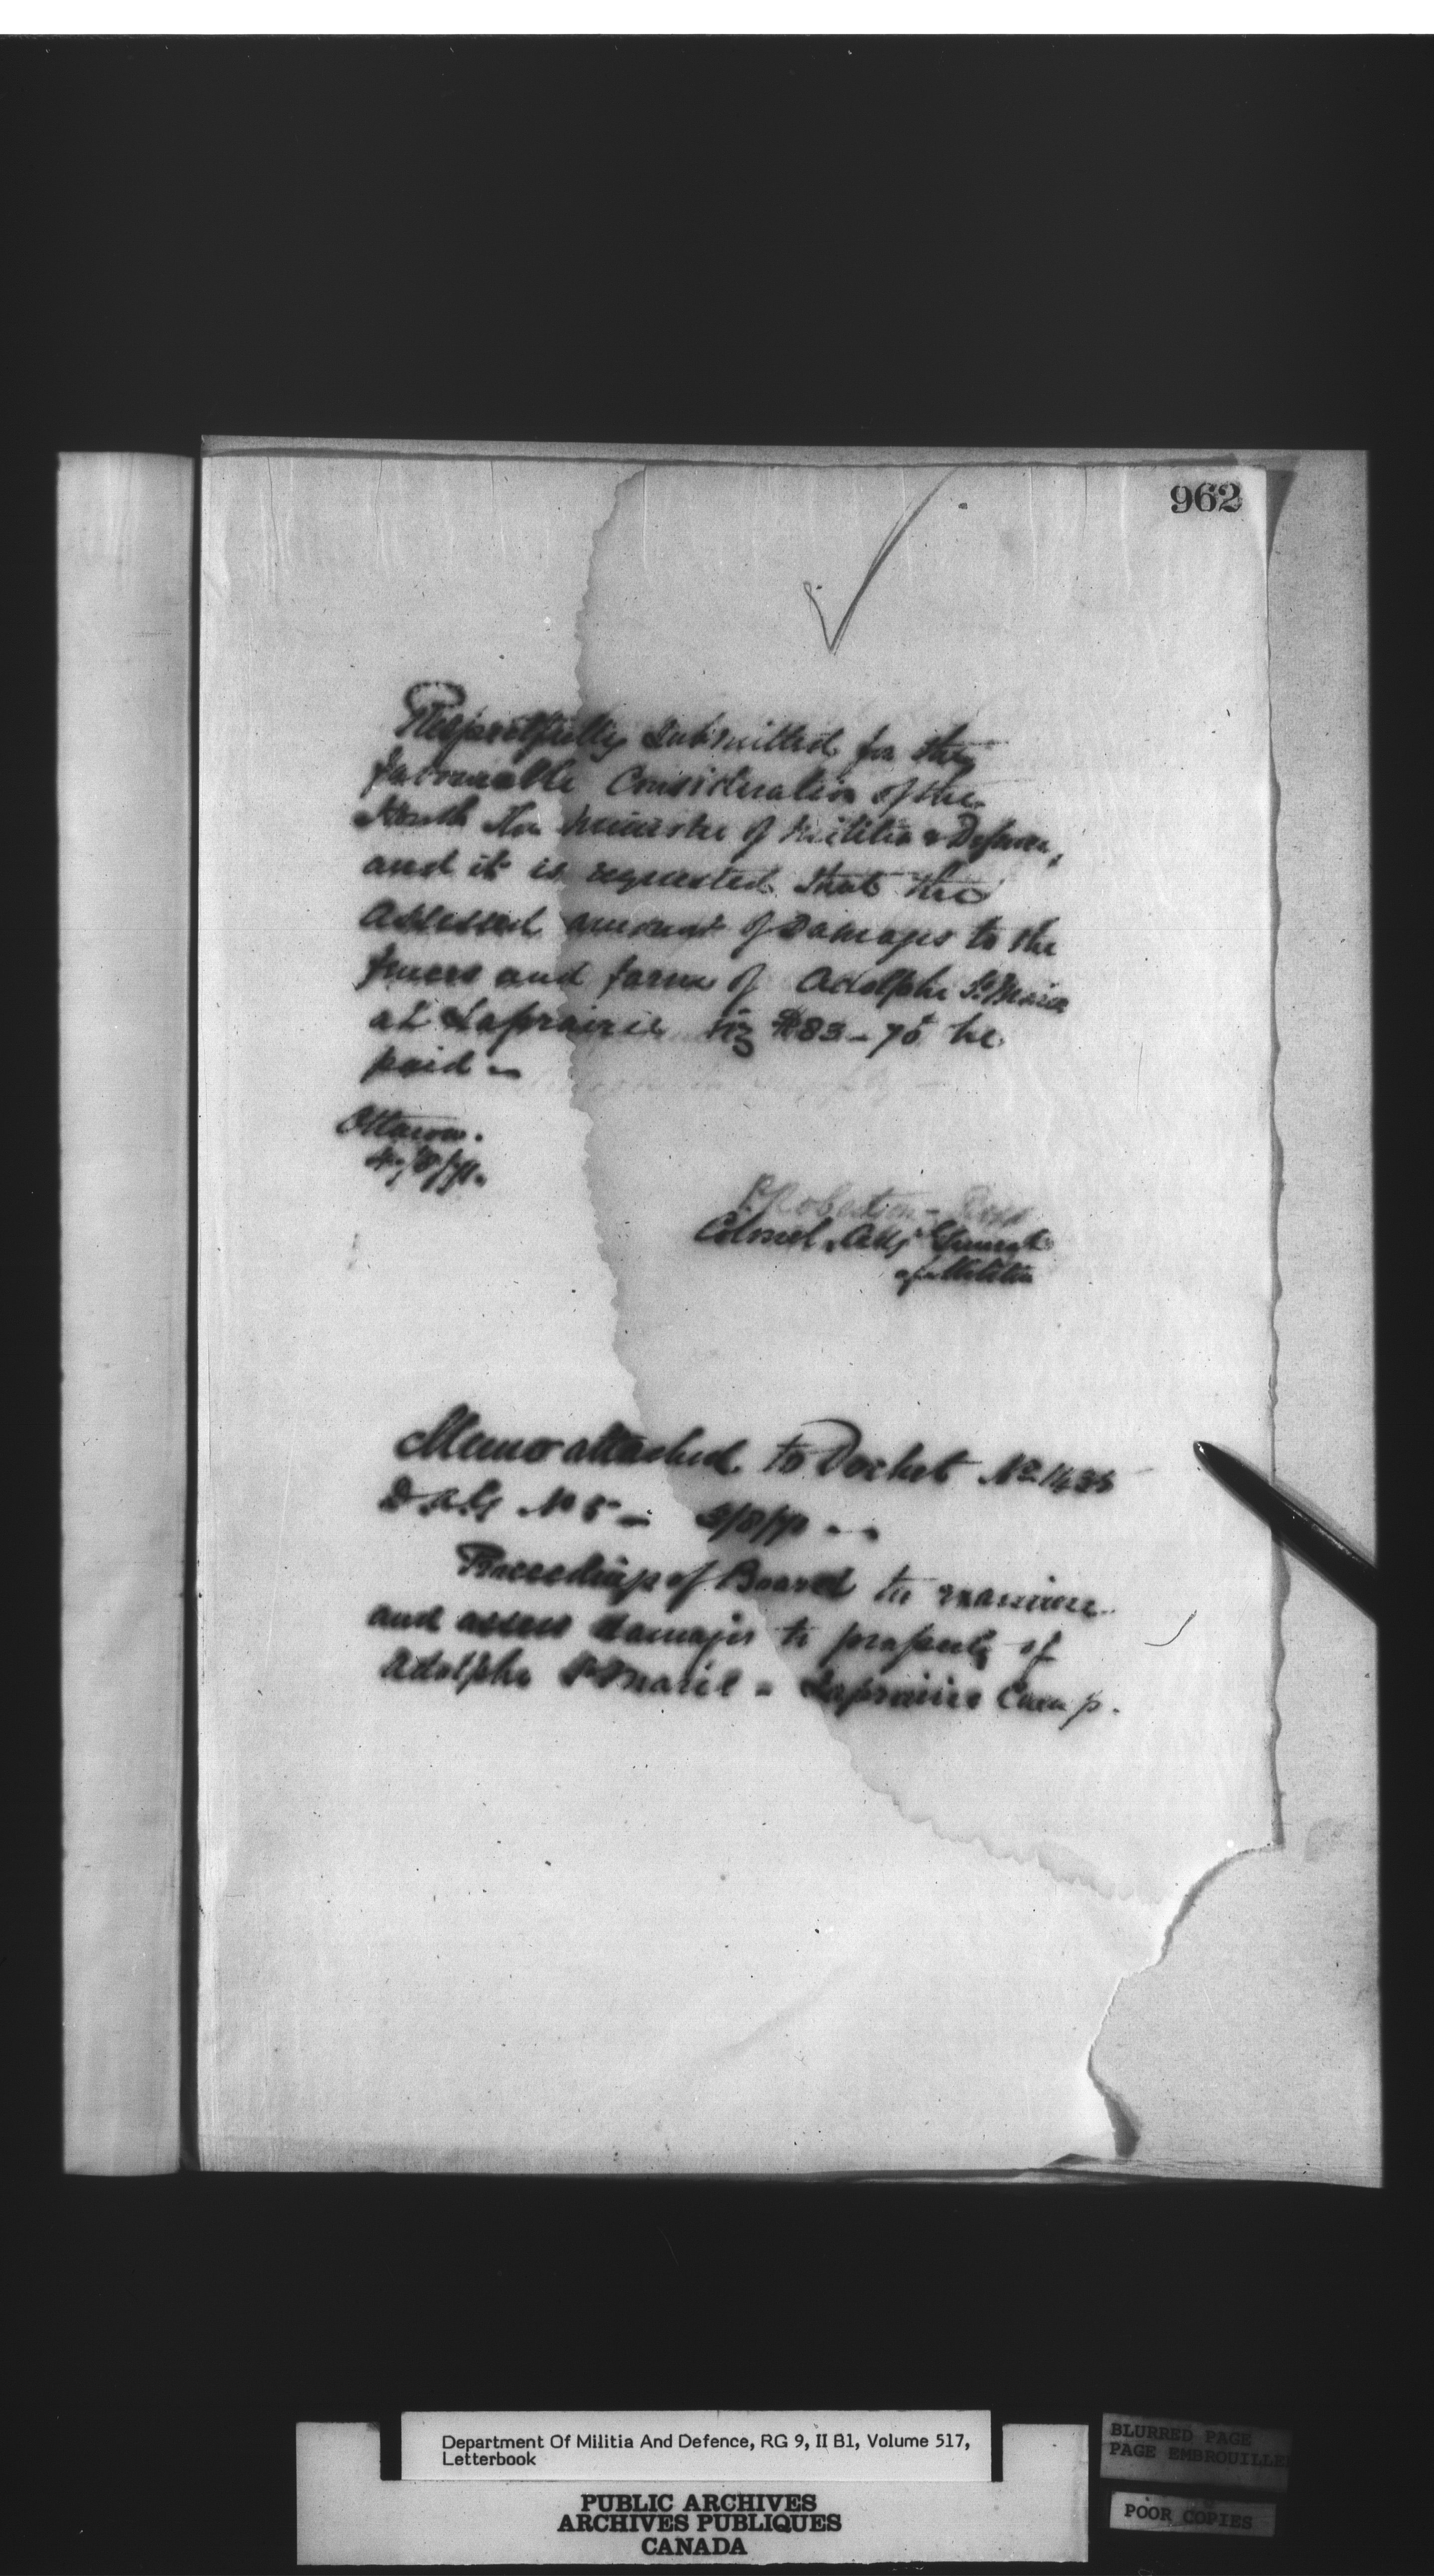 962
Respectfully submitted for the
favourable Consideration of the
Honble The Minister of Militia & Defence,
and it is requested that the
assessed amount of Damages to the
fences and farm of Adolphe St. Marie
at Laprairie viz $83-75 be
paid -
Ottawa.
P. Robertson-Ross
Colonel, Adj. General
of Militia
Memo attached to Docket No.
D.A.G No 5 -
Proceedings of Board to examine
and assess damages to property of
Adolphe St Marie - Laprairie Camp.
Department Of Militia And Defence, RG 9, II B1, Volume 517,
Letterbook
PUBLIC ARCHIVES
ARCHIVES PUBLIQUES
CANADA
BLURRED PAGE
PAGE EMBROUILLE
POOR COPIES